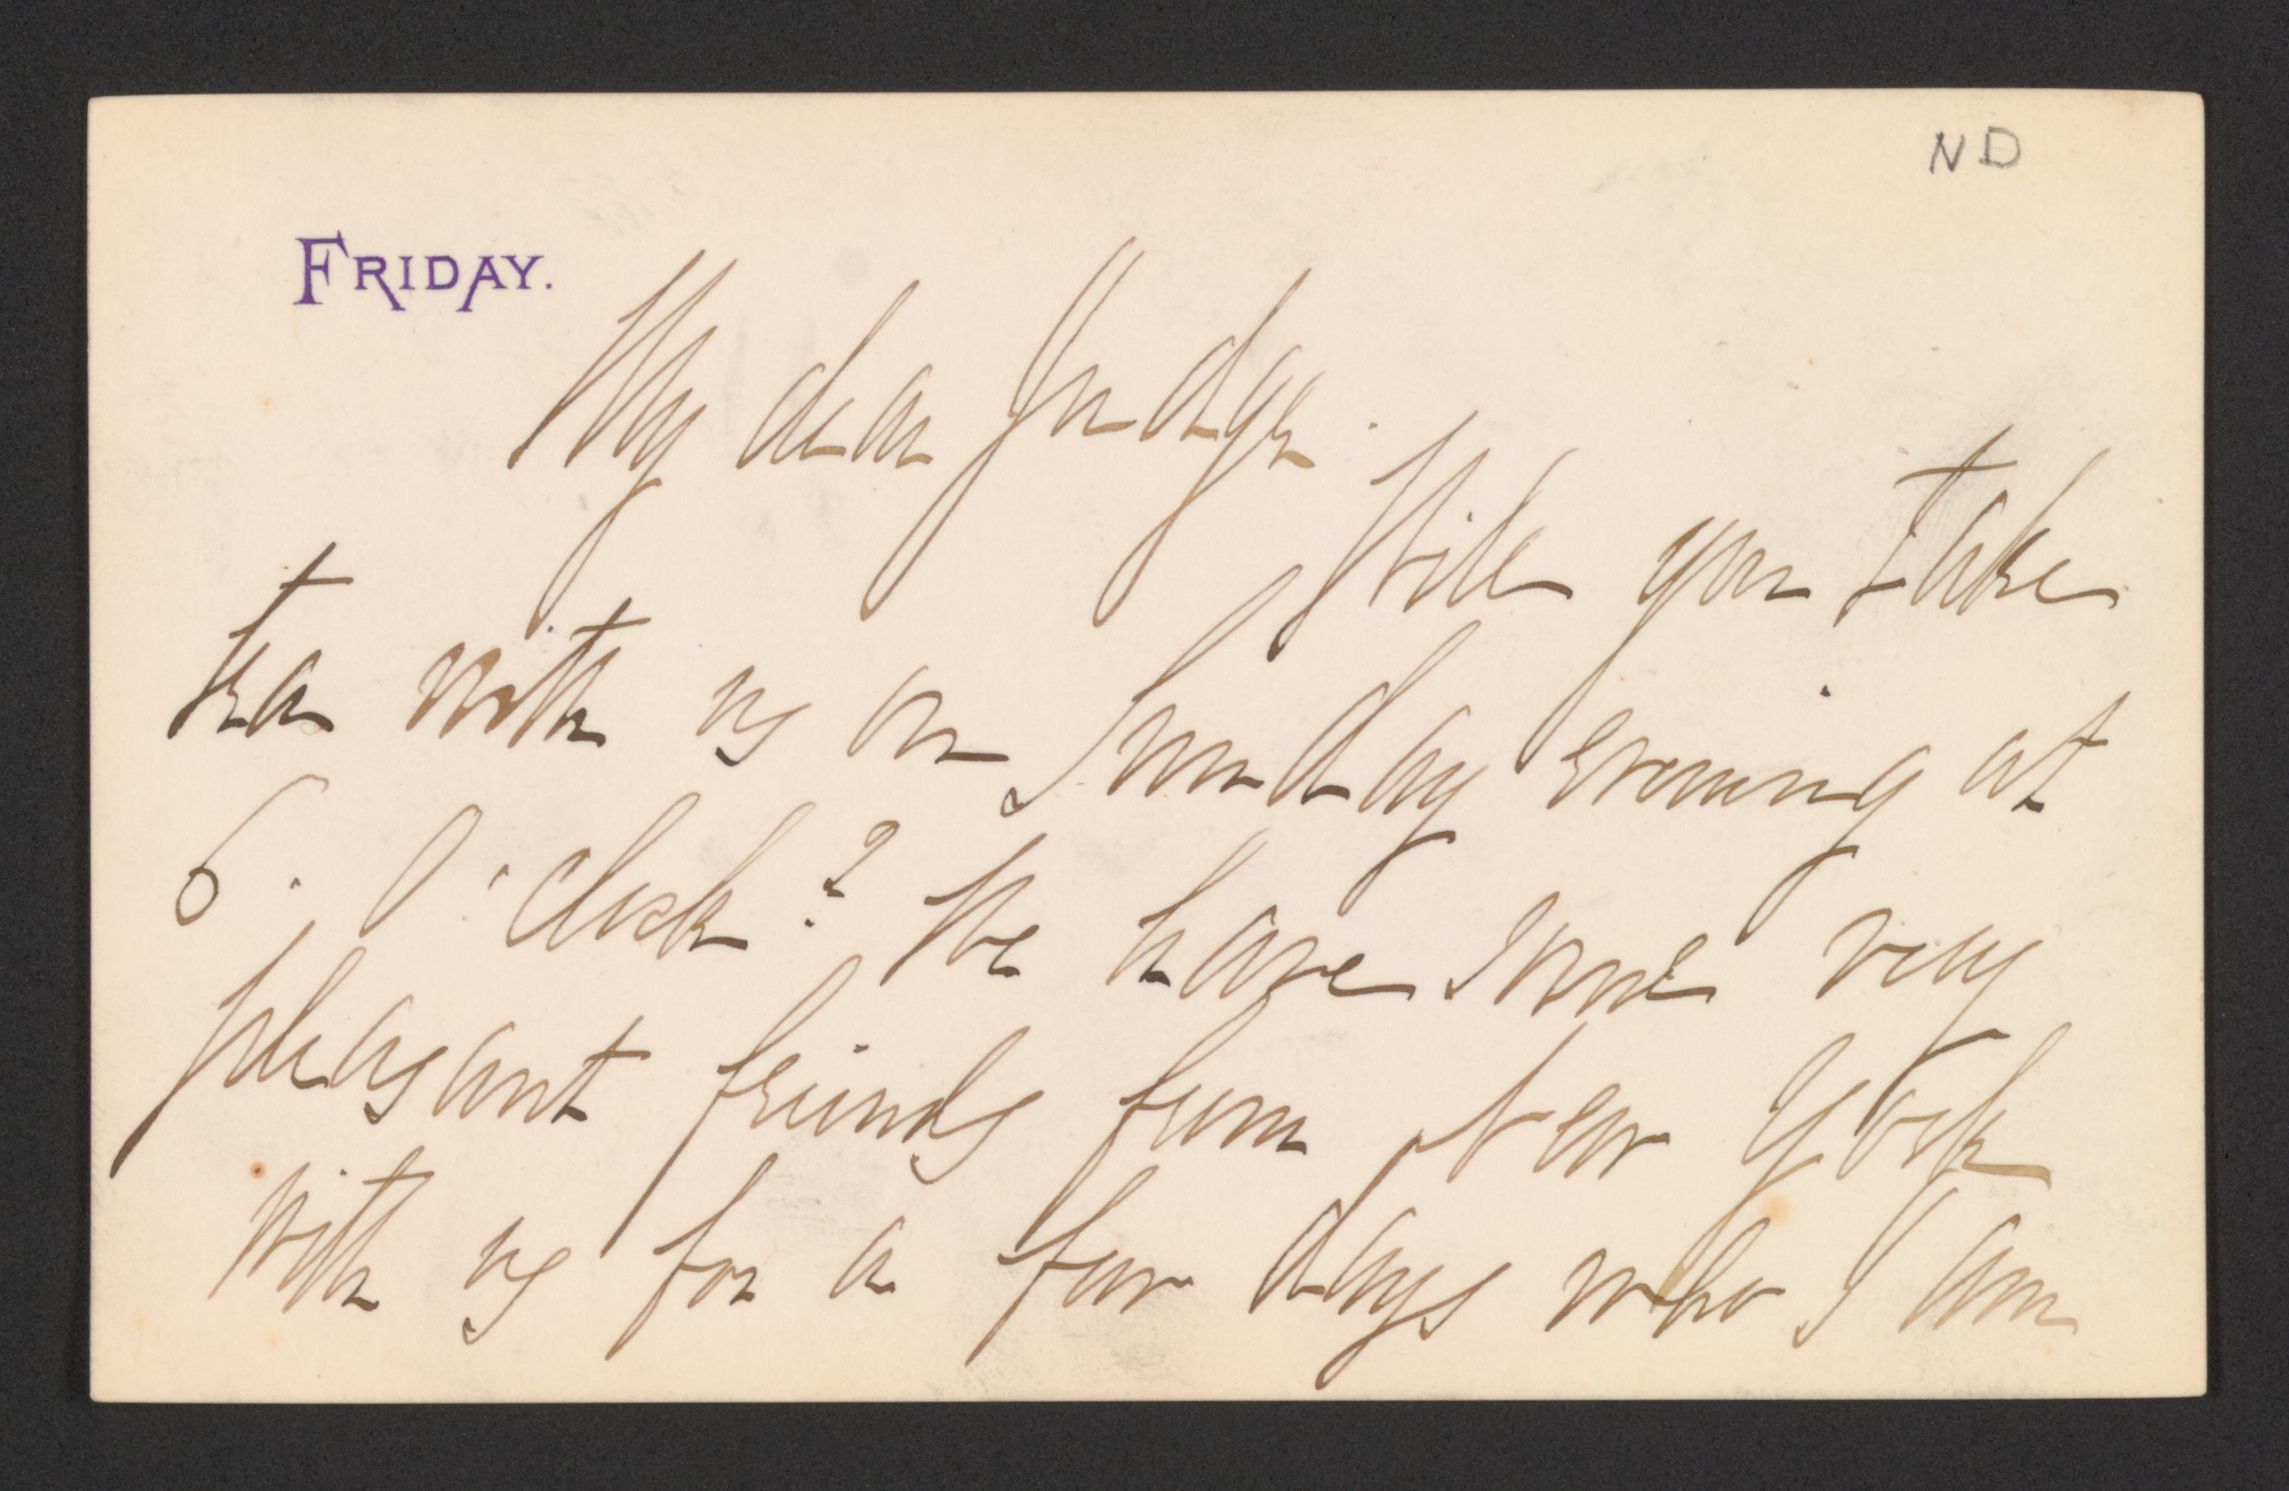 ND
FRIDAY.
My dear Judge.
Will you take
tea with us on Sunday evening at
6. O'clock? We have some very
pleasant friends from New York
with us for a few days who I am